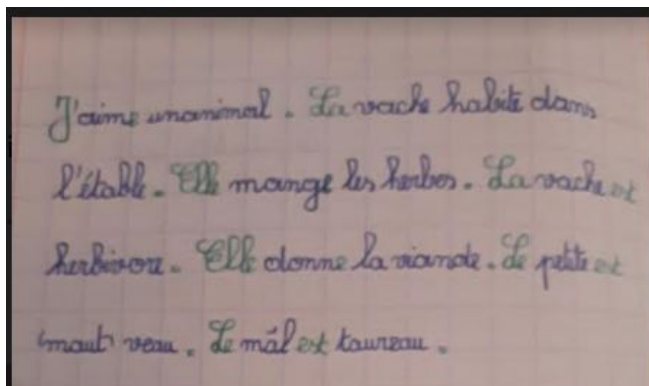 J'aime unanimal. La vache habite dans
l'étable. Elle mange les herbes. La vache est
herbivore. Elle donne la viande. Le petite est
(maut) veau. Le mâl est taureau.